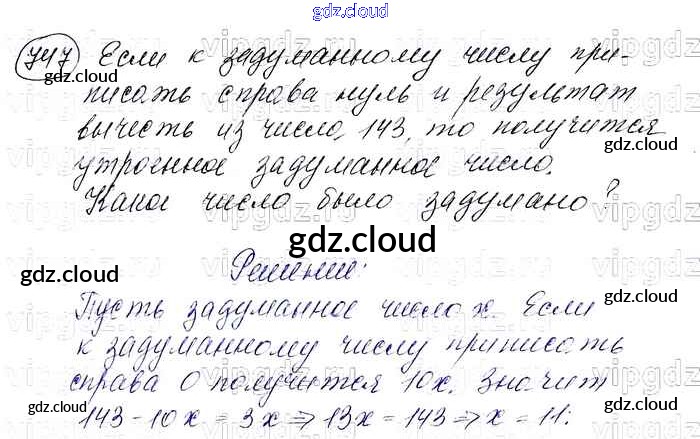 gdz.cloud
747 Если к задуманному числу при-
писать справа нуль и результат
вычесть из числа 143, то получится
утроенное задуманное число.
Какое число было задумано?
gdz.cloud
Решение:
Пусть задуманное число x. Если
к задуманному числу приписать
справа 0 получится 10x. Значит
143 - 10x = 3x ⇒ 13x = 143 ⇒ x = 11.